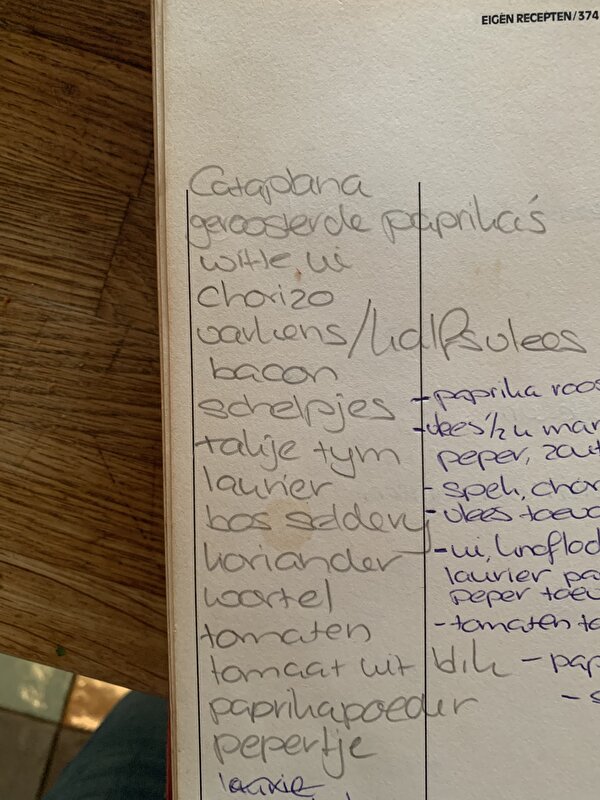 EIGEN RECEPTEN/374
Cataplana
geroosterde paprika's
witte ui
chorizo
varkens/kalfsvlees
bacon
schelpjes
takje tym
laurier
bos seldery
koriander
wortel
tomaten
tomaat uit blik
paprikapoeder
pepertje
- paprika roos
- vlees 1/2 u mar
peper, zout
- spek, chor
- vlees toevo
- ui, knofloo
laurier pa
peper toev
- tomaten to
- pap
- s